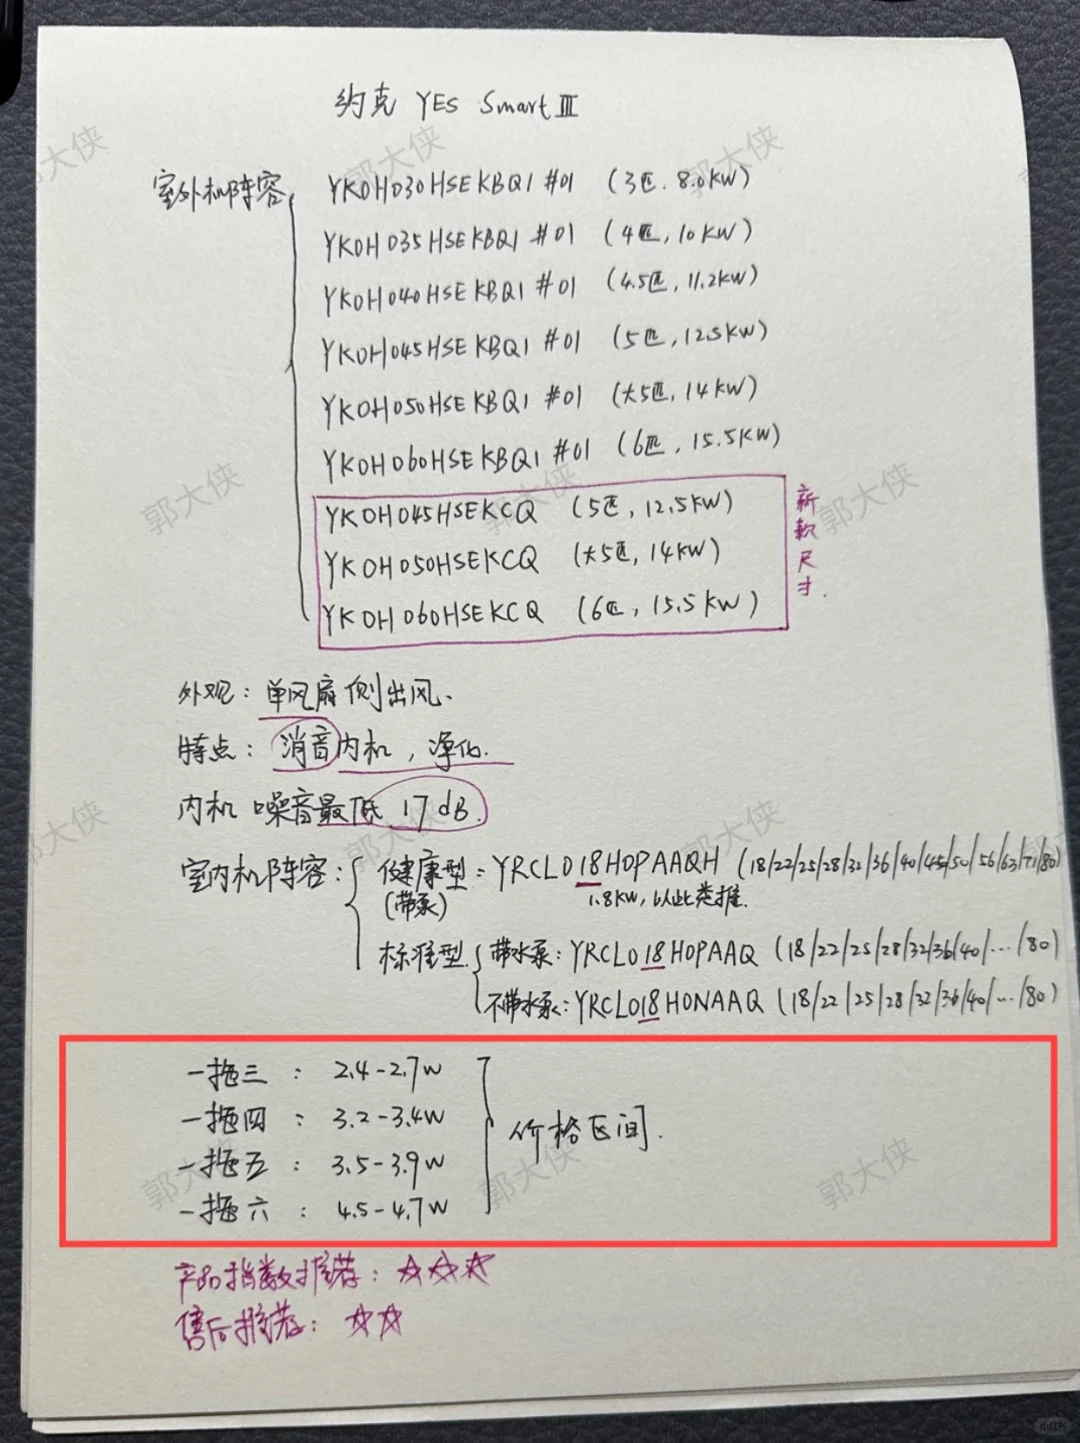 约克 YES Smart III
室外机阵容
YKOH030HSEKBQ1 #01 (3匹. 8.0KW)
YKOH035HSEKBQ1 #01 (4匹, 10KW)
YKOH040HSEKBQ1 #01 (4.5匹, 11.2KW)
YKOH045HSEKBQ1 #01 (5匹, 12.5KW)
YKOH050HSEKBQ1 #01 (大5匹, 14KW)
YKOH060HSEKBQ1 #01 (6匹, 15.5KW)
YKOH045HSEKCQ (5匹, 12.5KW)
YKOH050HSEKCQ (大5匹, 14KW)
YKOH060HSEKCQ (6匹, 15.5KW)
新款尺寸.
外观: 单风扇侧出风.
特点: 消音内机, 净化.
内机 噪音最低 17dB.
室内机阵容: 健康型: YRCL018HOPAAQH (18/22/25/28/32/36/40/45/50/56/63/71/80)
(带泵) 1.8KW, 以此类推.
标准型 带水泵: YRCL018HOPAAQ (18/22/25/28/32/36/40/.../80)
不带水泵: YRCL018HONAAQ (18/22/25/28/32/36/40/.../80)
一拖三 : 2.4-2.7W
一拖四 : 3.2-3.4W
价格区间.
一拖五 : 3.5-3.9W
一拖六 : 4.5-4.7W
产品指数推荐: ☆☆☆
售后推荐: ☆☆
郭大侠
郭大侠
郭大侠
郭大侠
郭大侠
郭大侠
郭大侠
郭大侠
郭大侠
郭大侠
郭大侠
郭大侠
小红书